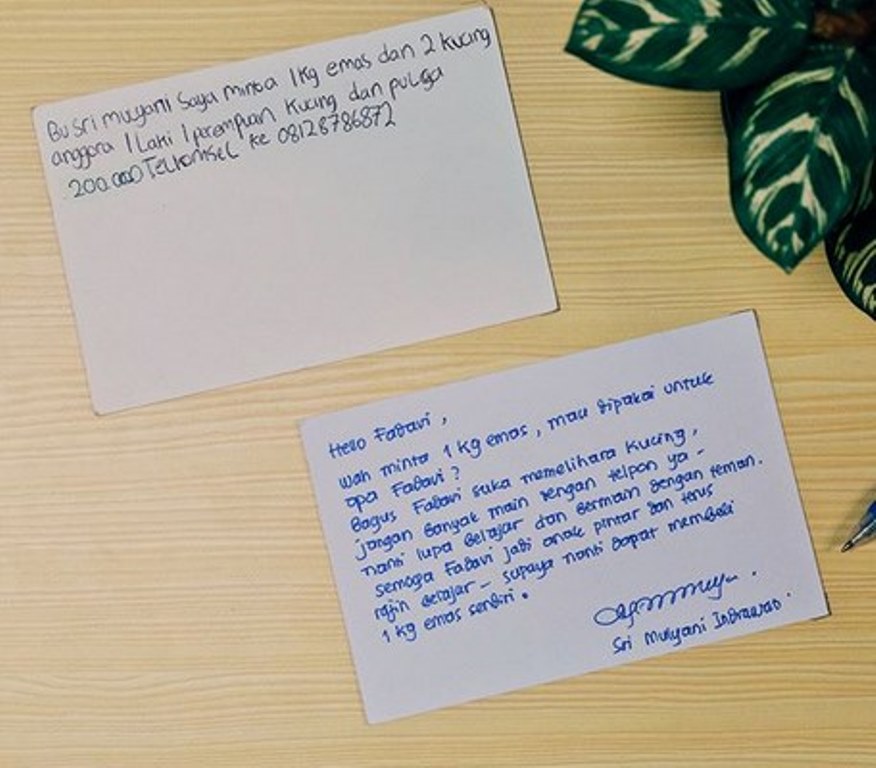 Bu Sri mulyani Saya minta 1Kg emas dan 2 kucing
anggora 1 Laki 1 perempuan kucing dan pulsa
200.000 TeLkomseL ke 08128786872
Hello Fabavi,
wah minta 1 kg emas, mau dipakai untuk
apa Fabavi?
Bagus Fabavi suka memelihara kucing,
jangan banyak main dengan telpon ya -
nanti lupa belajar dan bermain dengan teman.
semoga Fabavi jadi anak pintar dan terus
rajin belajar - supaya nanti dapat membeli
1 kg emas sendiri.
Sri Mulyani Indrawati.